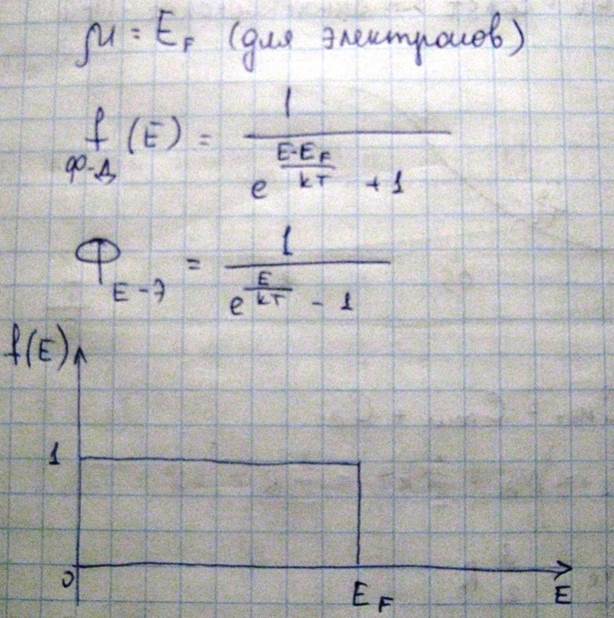 μ = E_F (для электронов)
f_Ф-Д (E) = 1 / (e^((E-E_F)/kT) + 1)
Ф_Е-Э = 1 / (e^(E/kT) - 1)
f(E)
1
0 E_F E